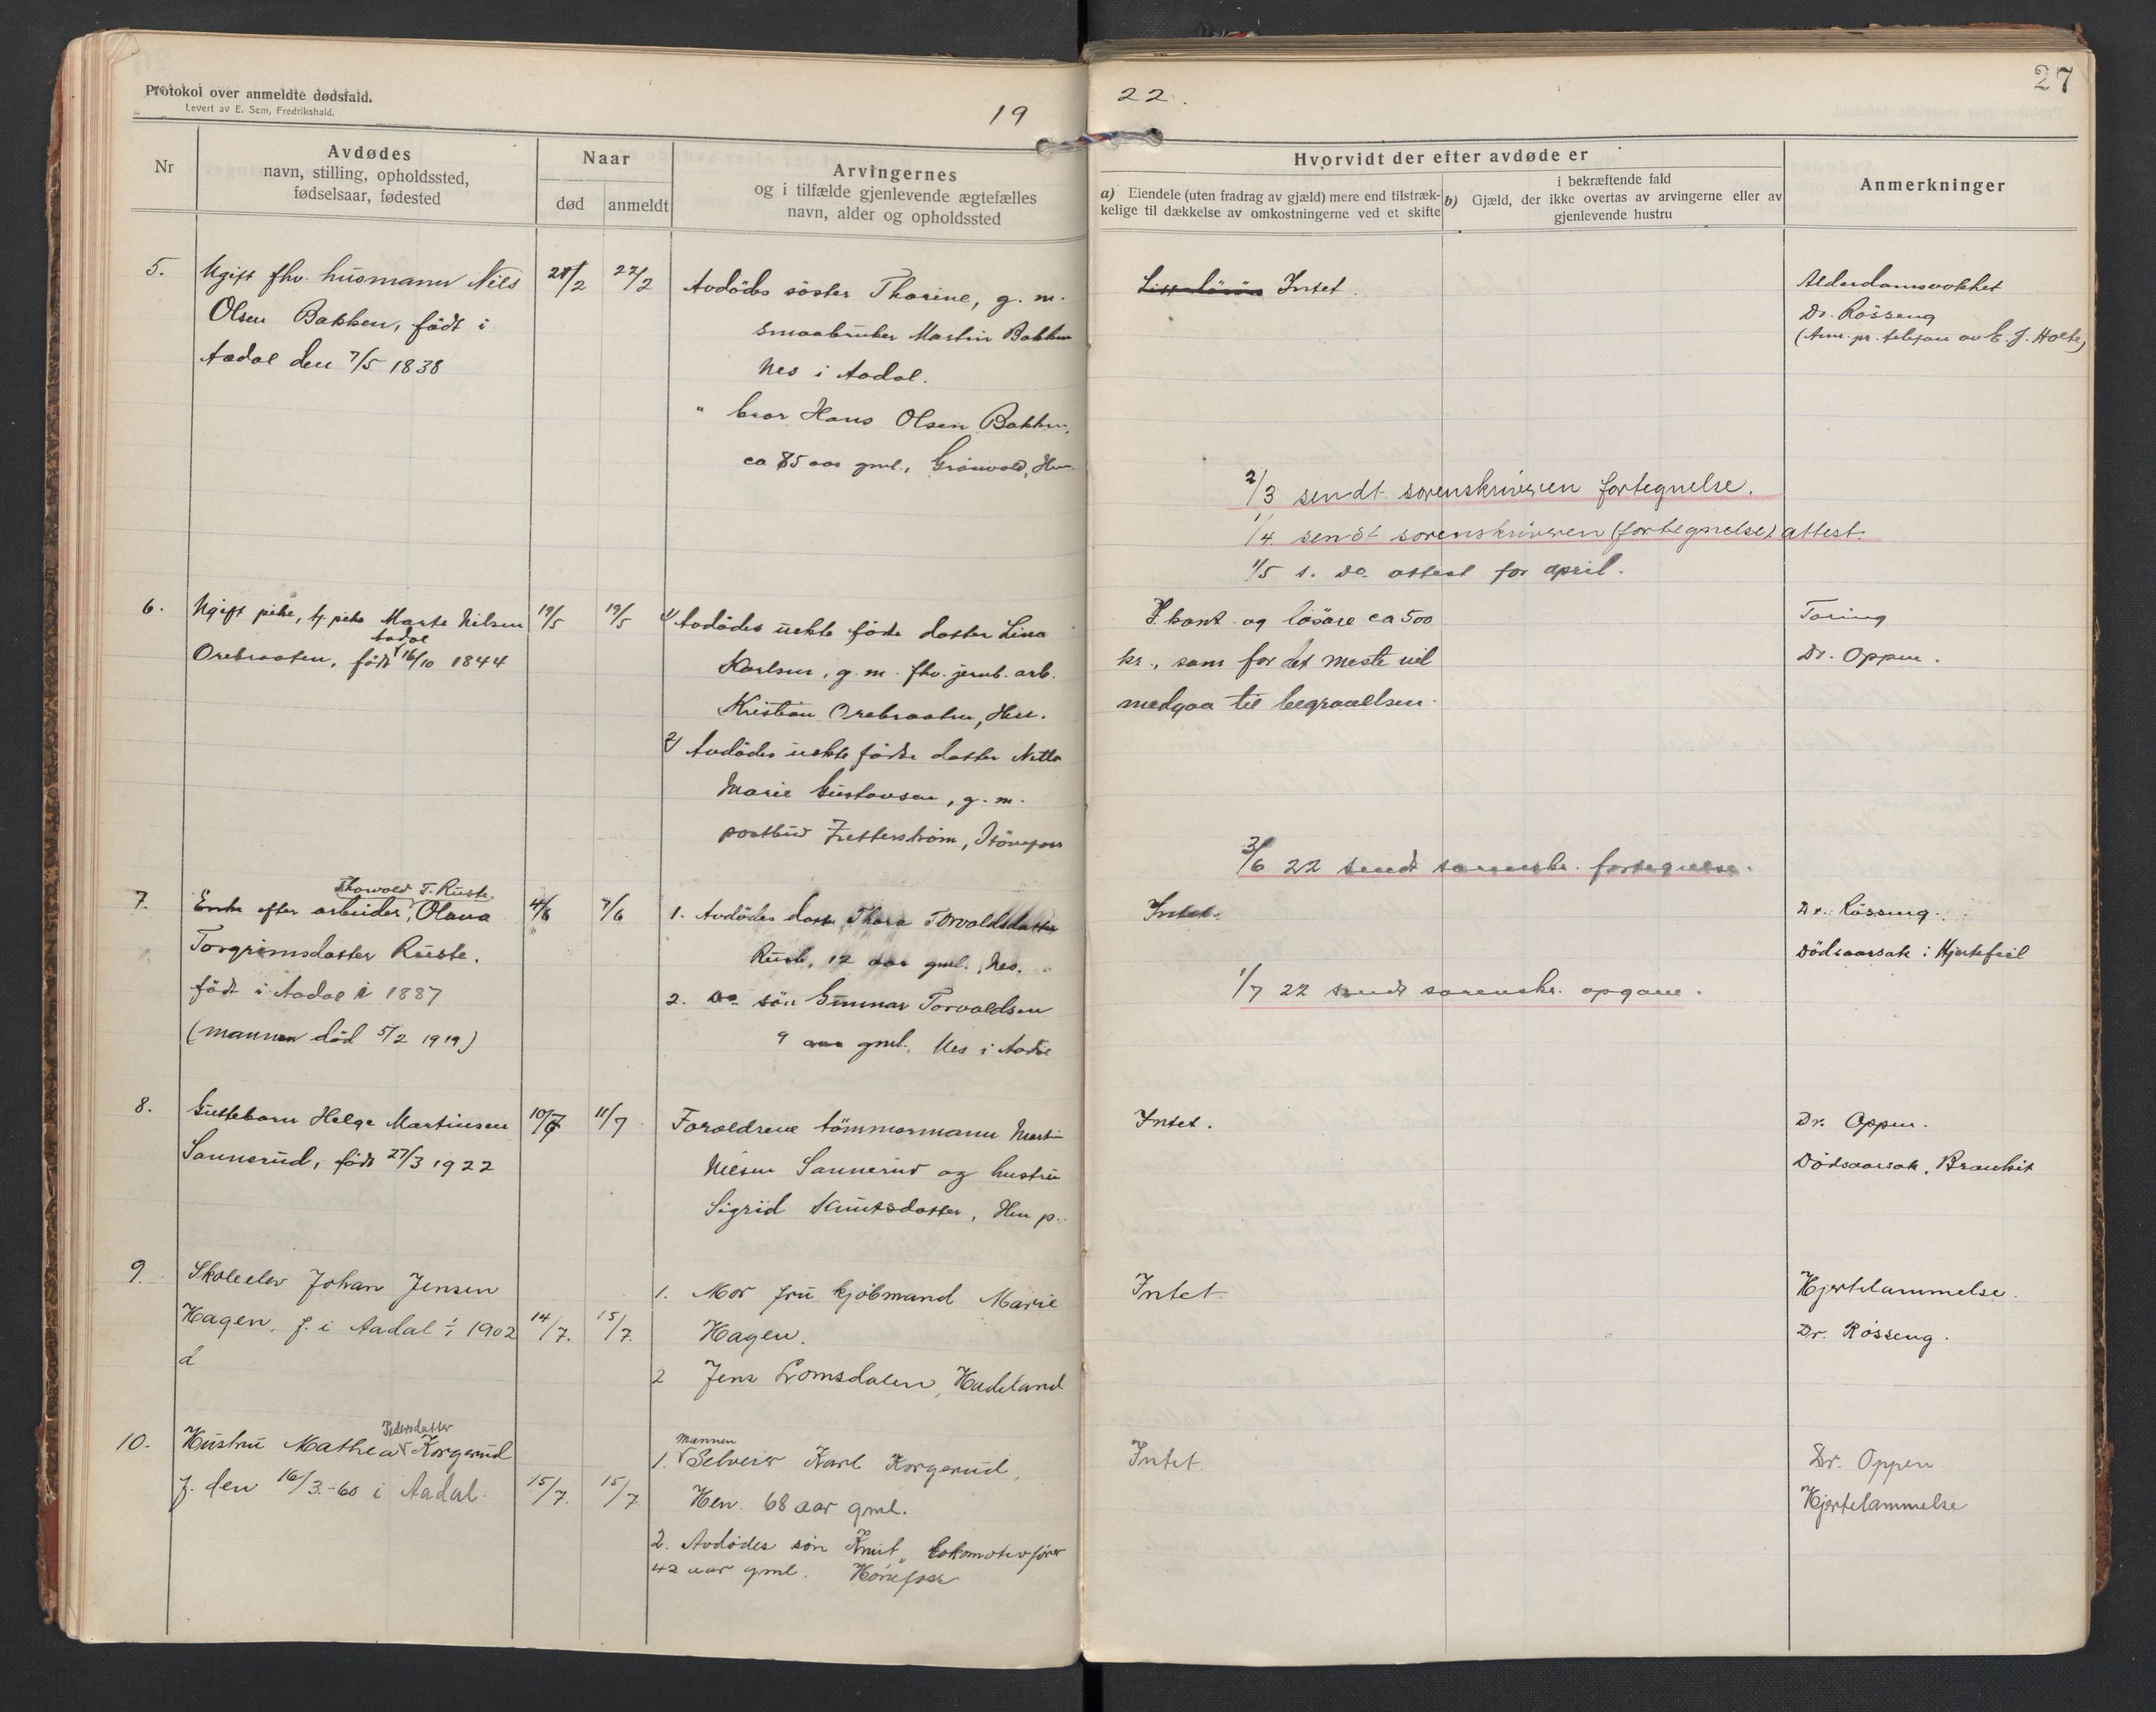 Protokol over anmeldte dødsfald.
Levert av E. Sem, Fredrikshald.
19
22.
27
Nr
Avdødes
navn, stilling, opholdssted,
fødselsaar, fødested
Naar
død
anmeldt
Arvingernes
og i tilfælde gjenlevende ægtefælles
navn, alder og opholdssted
Hvorvidt der efter avdøde er
a) Eiendele (uten fradrag av gjæld) mere end tilstræk-
kelige til dækkelse av omkostningerne ved et skifte
i bekræftende fald
b) Gjæld, der ikke overtas av arvingerne eller av
gjenlevende hustru
Anmerkninger
5.
Ugift fhv. husmann Nils
Olsen Bakken, født i
Aadal den 7/5 1838
21/2
22/2
Avdødes søster Thorine, g. m.
smaabruker Martin Bakken
Nes i Aadal.
" bror Hans Olsen Bakken,
ca 85 aar gml., Grønvold, Hen
Intet.
Alderdomssvakhet
Dr. Rösseng
(Anm. pr. telefon av E. J. Holte)
2/3 sendt sorenskriveren fortegnelse.
1/4 sendt sorenskriveren (fortegnelse) attest.
1/5 s. do attest for april.
6.
Ugift pike, f. pike Marte Nilsen
Aadal
Orebraaten, født 16/10 1844
19/5
19/5
1/ Avdødes uekte fødte datter Lina
Karlsen, g. m. fhv. jernb. arb.
Kristian Orebraaten, Hen.
2/ Avdødes uekte fødte datter Netta
Marie Gustavsen, g. m.
postbud Zetterström, Hönefoss
kont. og løsöre ca 500
kr., som for det meste vil
medgaa til begravelsen.
Tæring
Dr. Oppen.
3/6 22 sendt sorenskr. fortegnelse.
7.
Thorvald T. Ruste
Enke efter arbeider, Olava
Torgrimsdatter Ruste.
født i Aadal i 1887
(mannen død 5/2 1919)
4/6
7/6
1. Avdødes datter Thora Torvaldsdatter
Ruste, 12 aar gml., Nes.
2. Do sön Gunnar Torvaldsen
9 aar gml. Nes i Aadal
Intet.
Dr. Rösseng.
Dödsaarsak: Hjertefeil
1/7 22 sendt sorenskr. opgave.
8.
Guttebarn Helge Martinsen
Sannerud, født 27/3 1922
10/7
11/7
Foreldrene tömmermann Martin
Nilsen Sannerud og hustru
Sigrid Knutsdatter, Hen p..
Intet.
Dr. Oppen.
Dödsaarsak, Bronkit
9.
Skoleelev Johan Jensen
Hagen, f. i Aadal 1/1 1902
d
14/7.
15/7.
1. Mor fru kjøbmand Marie
Hagen.
2 Jens Lomsdalen, Hadeland
Intet.
Hjertelammelse.
Dr. Rösseng.
10.
Pedersdatter
Hustru Mathea Korgerud
f. den 16/3.-60 i Aadal.
15/7.
15/7
mannen
1. Selveier Karl Korgerud,
Hen. 68 aar gml.
2. Avdødes søn Knut, Lokomotivfører
42 aar gml. Hönefoss
Intet.
Dr. Oppen
Hjertelammelse